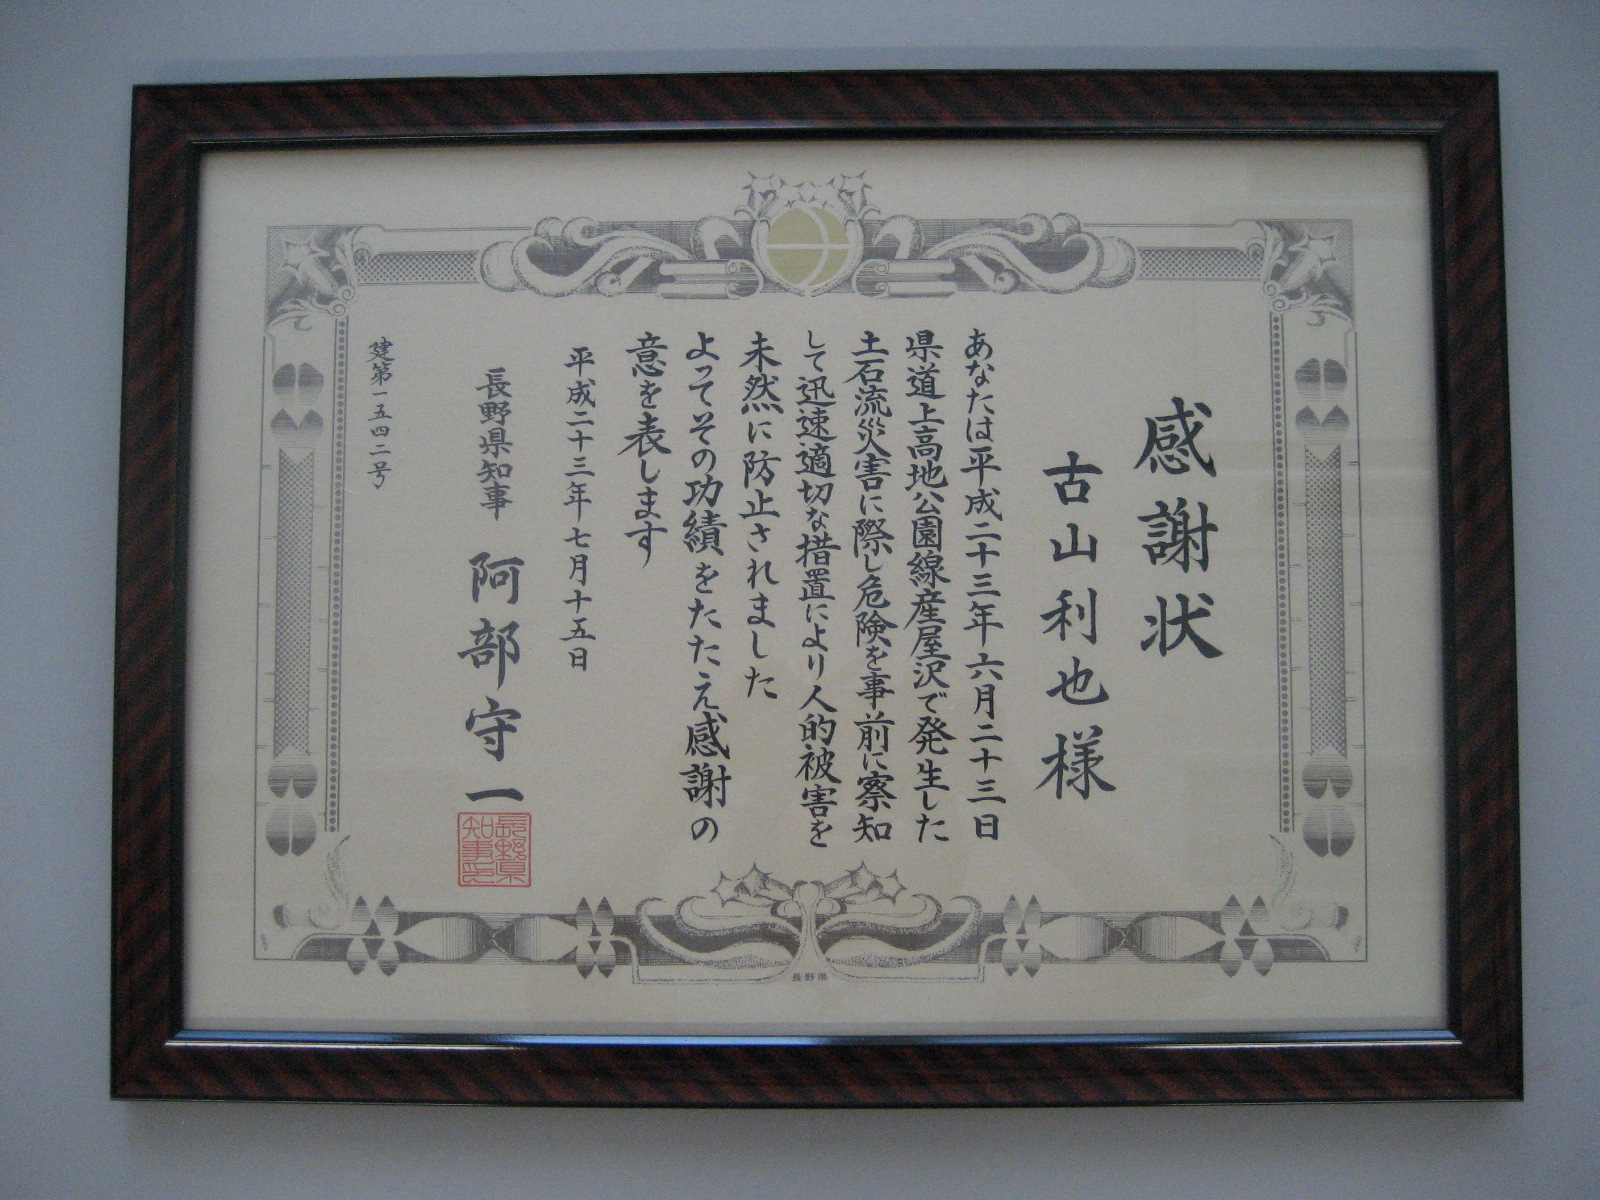 感謝状
古山利也様
あなたは平成二十三年六月二十三日
県道上高地公園線産屋沢で発生した
土石流災害に際し危険を事前に察知
して迅速適切な措置により人的被害を
未然に防止されました
よってその功績をたたえ感謝の
意を表します
平成二十三年七月十五日
長野県知事 阿部守一
長野縣
知事印
建第一五四二号
長野県